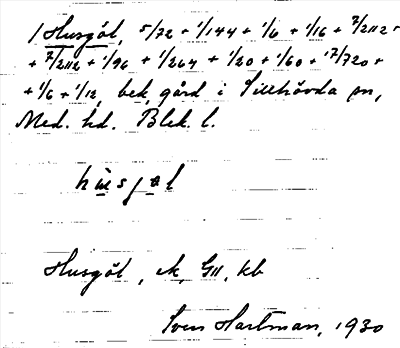 1 Husgöl, 5/72 + 1/144 + 1/6 + 1/16 + 7/2112 +
+ 7/2112 + 1/96 + 1/264 + 1/20 + 1/60 + 17/720 +
+ 1/6 + 1/12, bek. gård i Tillhövda sn,
Med. hd. Blek. l.
Husgöl, ek, GII, kb
Sven Hartman, 1930